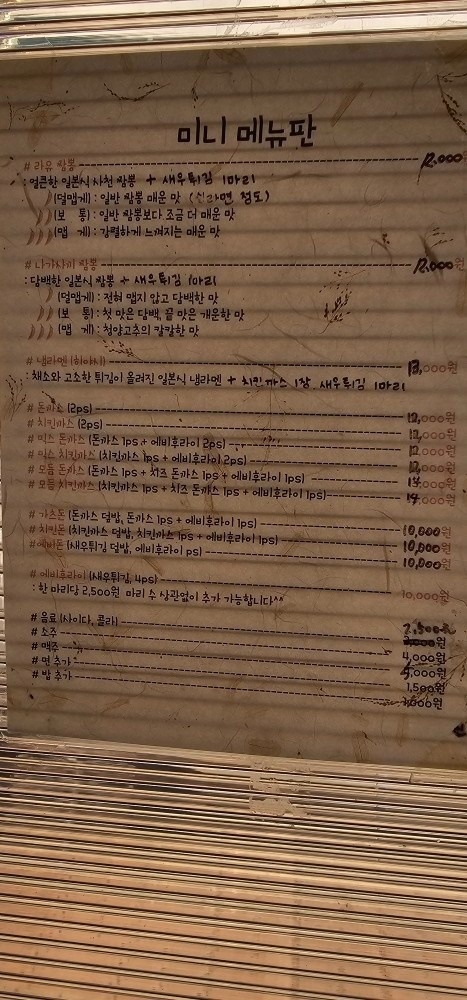 미니 메뉴판
# 라뮤 짬뽕 12,000
: 얼큰한 일본식 사천 짬뽕 + 새우튀김 1마리
(덜맵게) : 일반 짬뽕 매운 맛 (신라면 정도)
(보 통) : 일반 짬뽕보다 조금 더 매운 맛
(맵 게) : 강렬하게 느껴지는 매운 맛
# 나가사끼 짬뽕 12,000원
: 담백한 일본식 짬뽕 + 새우튀김 1마리
(덜맵게) : 전혀 맵지 않고 담백한 맛
(보 통) : 첫 맛은 담백, 끝 맛은 개운한 맛
(맵 게) : 청양고추의 칼칼한 맛
# 냉라멘 (히야시) 13,000원
: 채소와 고소한 튀김이 올려진 일본식 냉라멘 + 치킨까스 1장, 새우튀김 1마리
# 돈까스 (2ps) 12,000원
# 치킨까스 (2ps) 12,000원
# 믹스 돈까스 (돈까스 1ps + 에비후라이 2ps) 12,000원
# 믹스 치킨까스 (치킨까스 1ps + 에비후라이 2ps) 12,000원
# 모듬 돈까스 (돈까스 1ps + 치즈 돈까스 1ps + 에비후라이 1ps) 14,000원
# 모듬 치킨까스 (치킨까스 1ps + 치즈 돈까스 1ps + 에비후라이 1ps) 14,000원
# 가츠돈 (돈까스 덮밥, 돈까스 1ps + 에비후라이 1ps) 10,000원
# 치킨돈 (치킨까스 덮밥, 치킨까스 1ps + 에비후라이 1ps) 10,000원
# 에비돈 (새우튀김 덮밥, 에비후라이 ps) 10,000원
# 에비후라이 (새우튀김, 4ps) 10,000원
: 한 마리당 2,500원 마리 수 상관없이 추가 가능합니다^^
# 음료 (사이다, 콜라) 2,500원
# 소주 4,000원
# 맥주 5,000원
# 면 추가 1,500원
# 밥 추가 1,000원